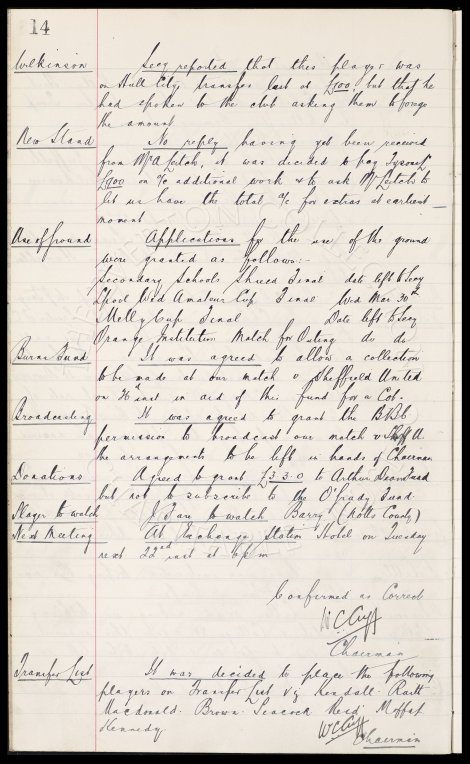 14
Wilkinson Secy reported that this player was
on Hull City's transfer list at £500, but that he
had spoken to the club asking them to forego
the amount
New Stand No reply having yet been received
from Mr A Leitch, it was decided to pay Tysons
on a/c additional work & to ask Mr Leitch to
let us have the total a/c for extras at earliest
moment
Use of ground Applications for the use of the ground
were granted as follows:-
Secondary Schools Shield Final date left to Secy
Lpool Wed Amateur Cup Final Wed Mar 30th
Melly Cup Final Date left to Secy
Orange Institution Match for Outing do do
Burns Fund It was agreed to allow a collection
to be made at our match v Sheffield United
on 26 inst in aid of this fund for a Cot.
Broadcasting It was agreed to grant the B.B.C.
permission to broadcast our match v Sheff U.
the arrangements to be left in hands of Chairman
Donations Agreed to grant £3.3.0 to Arthur Dean Fund
but not to subscribe to the O'Grady Fund
Player to watch to watch Barry (Notts County)
Next Meeting At Exchange Station Hotel on Tuesday
next 22nd inst at 6 pm
Confirmed as Correct
W C Cuff
Chairman
Transfer List It was decided to place the following
players on Transfer List viz Kendall. Raitt
Macdonald. Brown. Peacock Reid, Moffat
Kennedy.
W C Cuff
Chairman